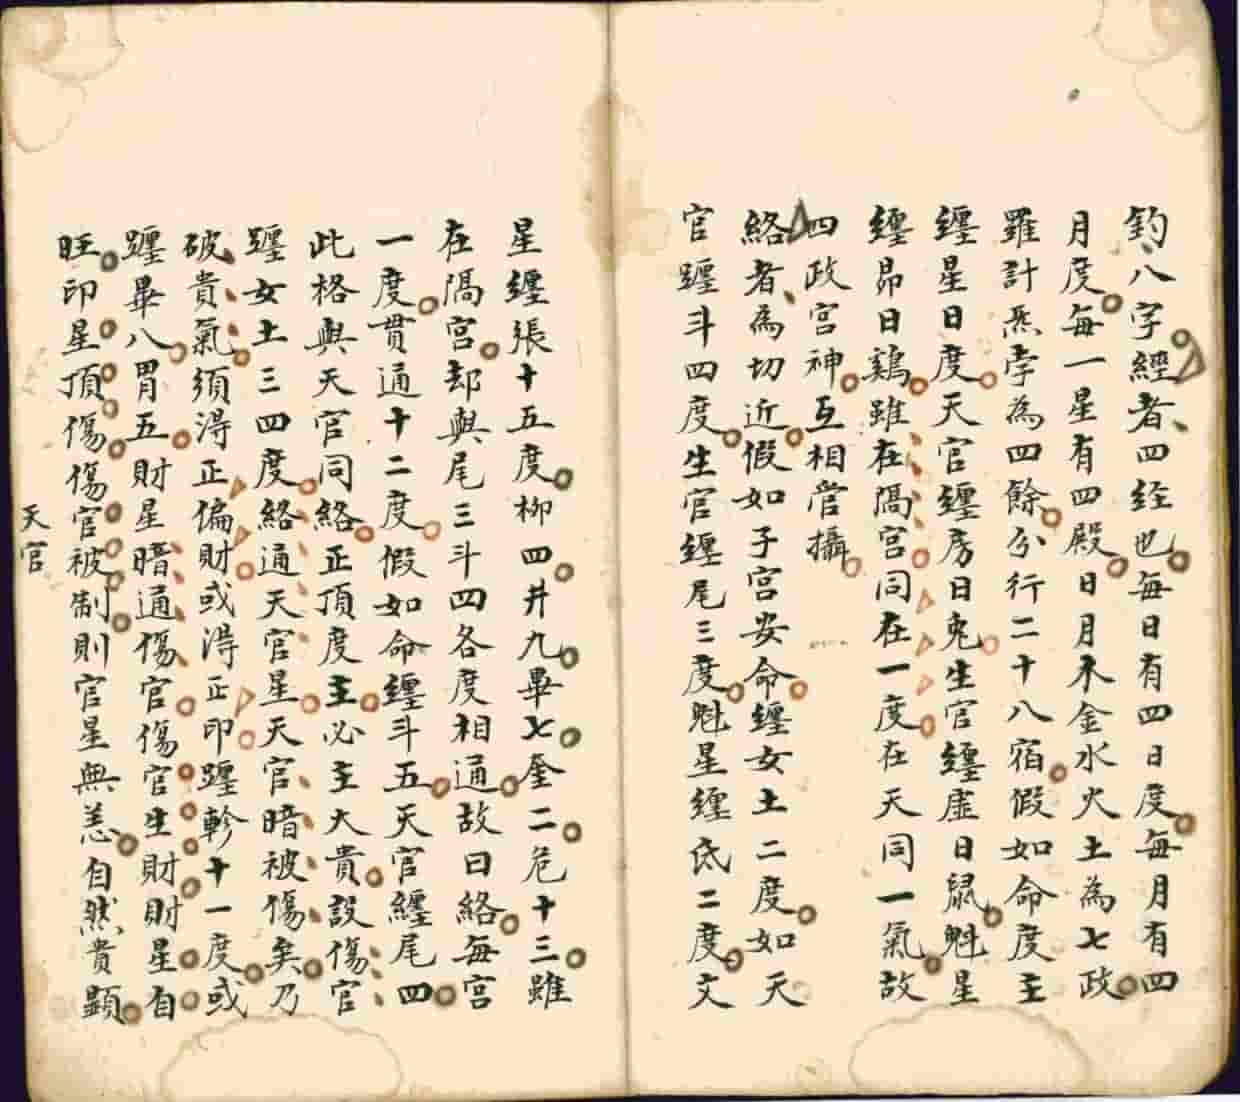 鈞八字經者四经也每日有四日度每月有四
月度每一星有四殿日月木金水火土為七政
羅計炁孛為四餘分行二十八宿假如命度主
纒星日度天官纒房日兎生官纒虛日鼠魁星
纒昴日鷄雖在隔宮同在一度在天同一氣故
四政宮神互相管攝
絡者為切近假如子宮安命纒女土二度如天
官躔斗四度生官纒尾三度魁星纒氐二度文
星纒張十五度柳四井九畢七奎二危十三雖
在隔宮却與尾三斗四各度相通故曰絡每宮
一度贯通十二度假如命纒斗五天官纒尾四
此格與天官同絡正頂度主必主大貴設傷官
躔女土三四度絡通天官星天官暗被傷矣乃
破貴氣須淂正偏財或淂正印躔軫十一度或
躔畢八胃五財星暗通傷官傷官生財財星自
旺印星頂傷傷官被制則官星無恙自然貴顯
天官